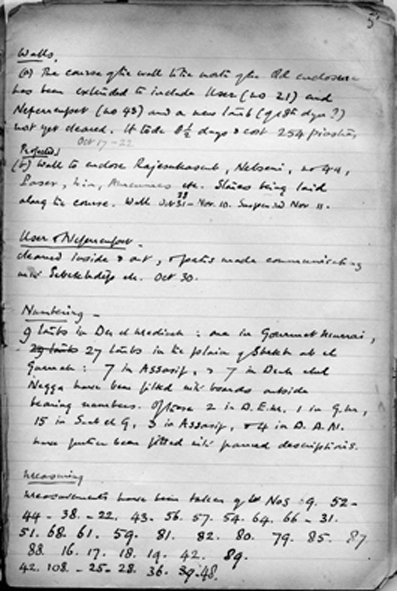 5
Walls.
(a) The course of the wall to the north of the Old enclosure
has been extended to include User (no 21) and
Neferrenpet (no 43) and a new tomb (of 18th dyn ?)
not yet cleared. It took 8½ days & cost 254 piastres
Oct 17-22
Projected
(b) Wall to enclose Rajeserkasenb, Nebseni, no 44,
Paser, etc. Stones being laid
along the course. Wall Oct 31 - Nov. 10. Suspended Nov 11.
28
User & Neferrenpet -
cleared inside & out, & paths made communicating
with etc. Oct 30.
Numbering -
9 tombs in Der el Medineh : one in Gournet Murrai,
29 tombs 27 tombs in the plain of Shekh abd el
Gurnah : 7 in Assasif, & 7 in Derh abul
Nagga have been fitted with boards outside
bearing numbers. Of these 2 in D.E.M. 1 in G.M.,
15 in S. abd el G, 3 in Assasif, & 4 in D. A. N.
have further been fitted with painted descriptions.
Measuring
Measurements have been taken of Nos 9. 52-
44 - 38. - 22. 43. 56. 57. 54. 64. 66 - 31.
51. 68. 61. 59. 81. 82. 80. 79. 85. 87
88. 16. 17. 18. 19. 42. 89.
42. 108. - 25 - 28. 36. 39. 48.